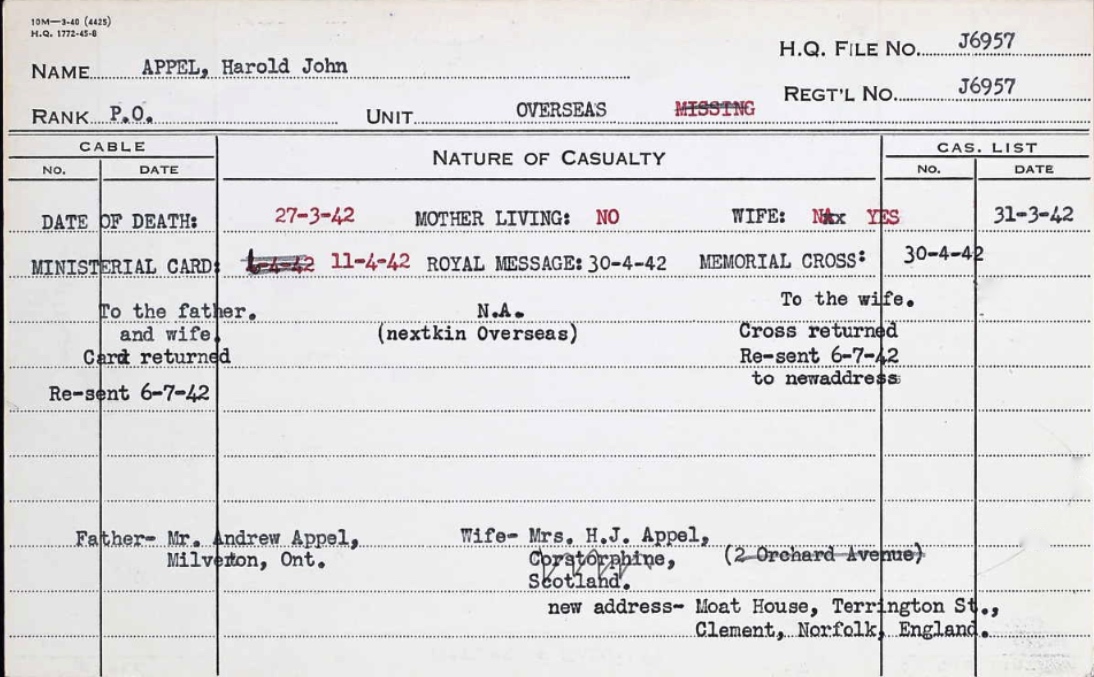 10M—3-40 (4425)
H.Q. 1772-45-8
H.Q. FILE NO. J6957
NAME APPEL, Harold John
REGT'L NO. J6957
RANK P.O. UNIT OVERSEAS MISSING
CABLE NATURE OF CASUALTY CAS. LIST
NO. DATE NO. DATE
DATE OF DEATH: 27-3-42 MOTHER LIVING: NO WIFE: YES 31-3-42
MINISTERIAL CARD: 6-4-42 11-4-42 ROYAL MESSAGE: 30-4-42 MEMORIAL CROSS: 30-4-42
To the father. N.A. To the wife.
and wife. (nextkin Overseas) Cross returned
Card returned Re-sent 6-7-42
to newaddress
Re-sent 6-7-42
Father- Mr. Andrew Appel, Wife- Mrs. H.J. Appel,
Milverton, Ont. Corstorphine, (2 Orchard Avenue)
Scotland.
new address- Moat House, Terrington St.,
Clement, Norfolk, England.